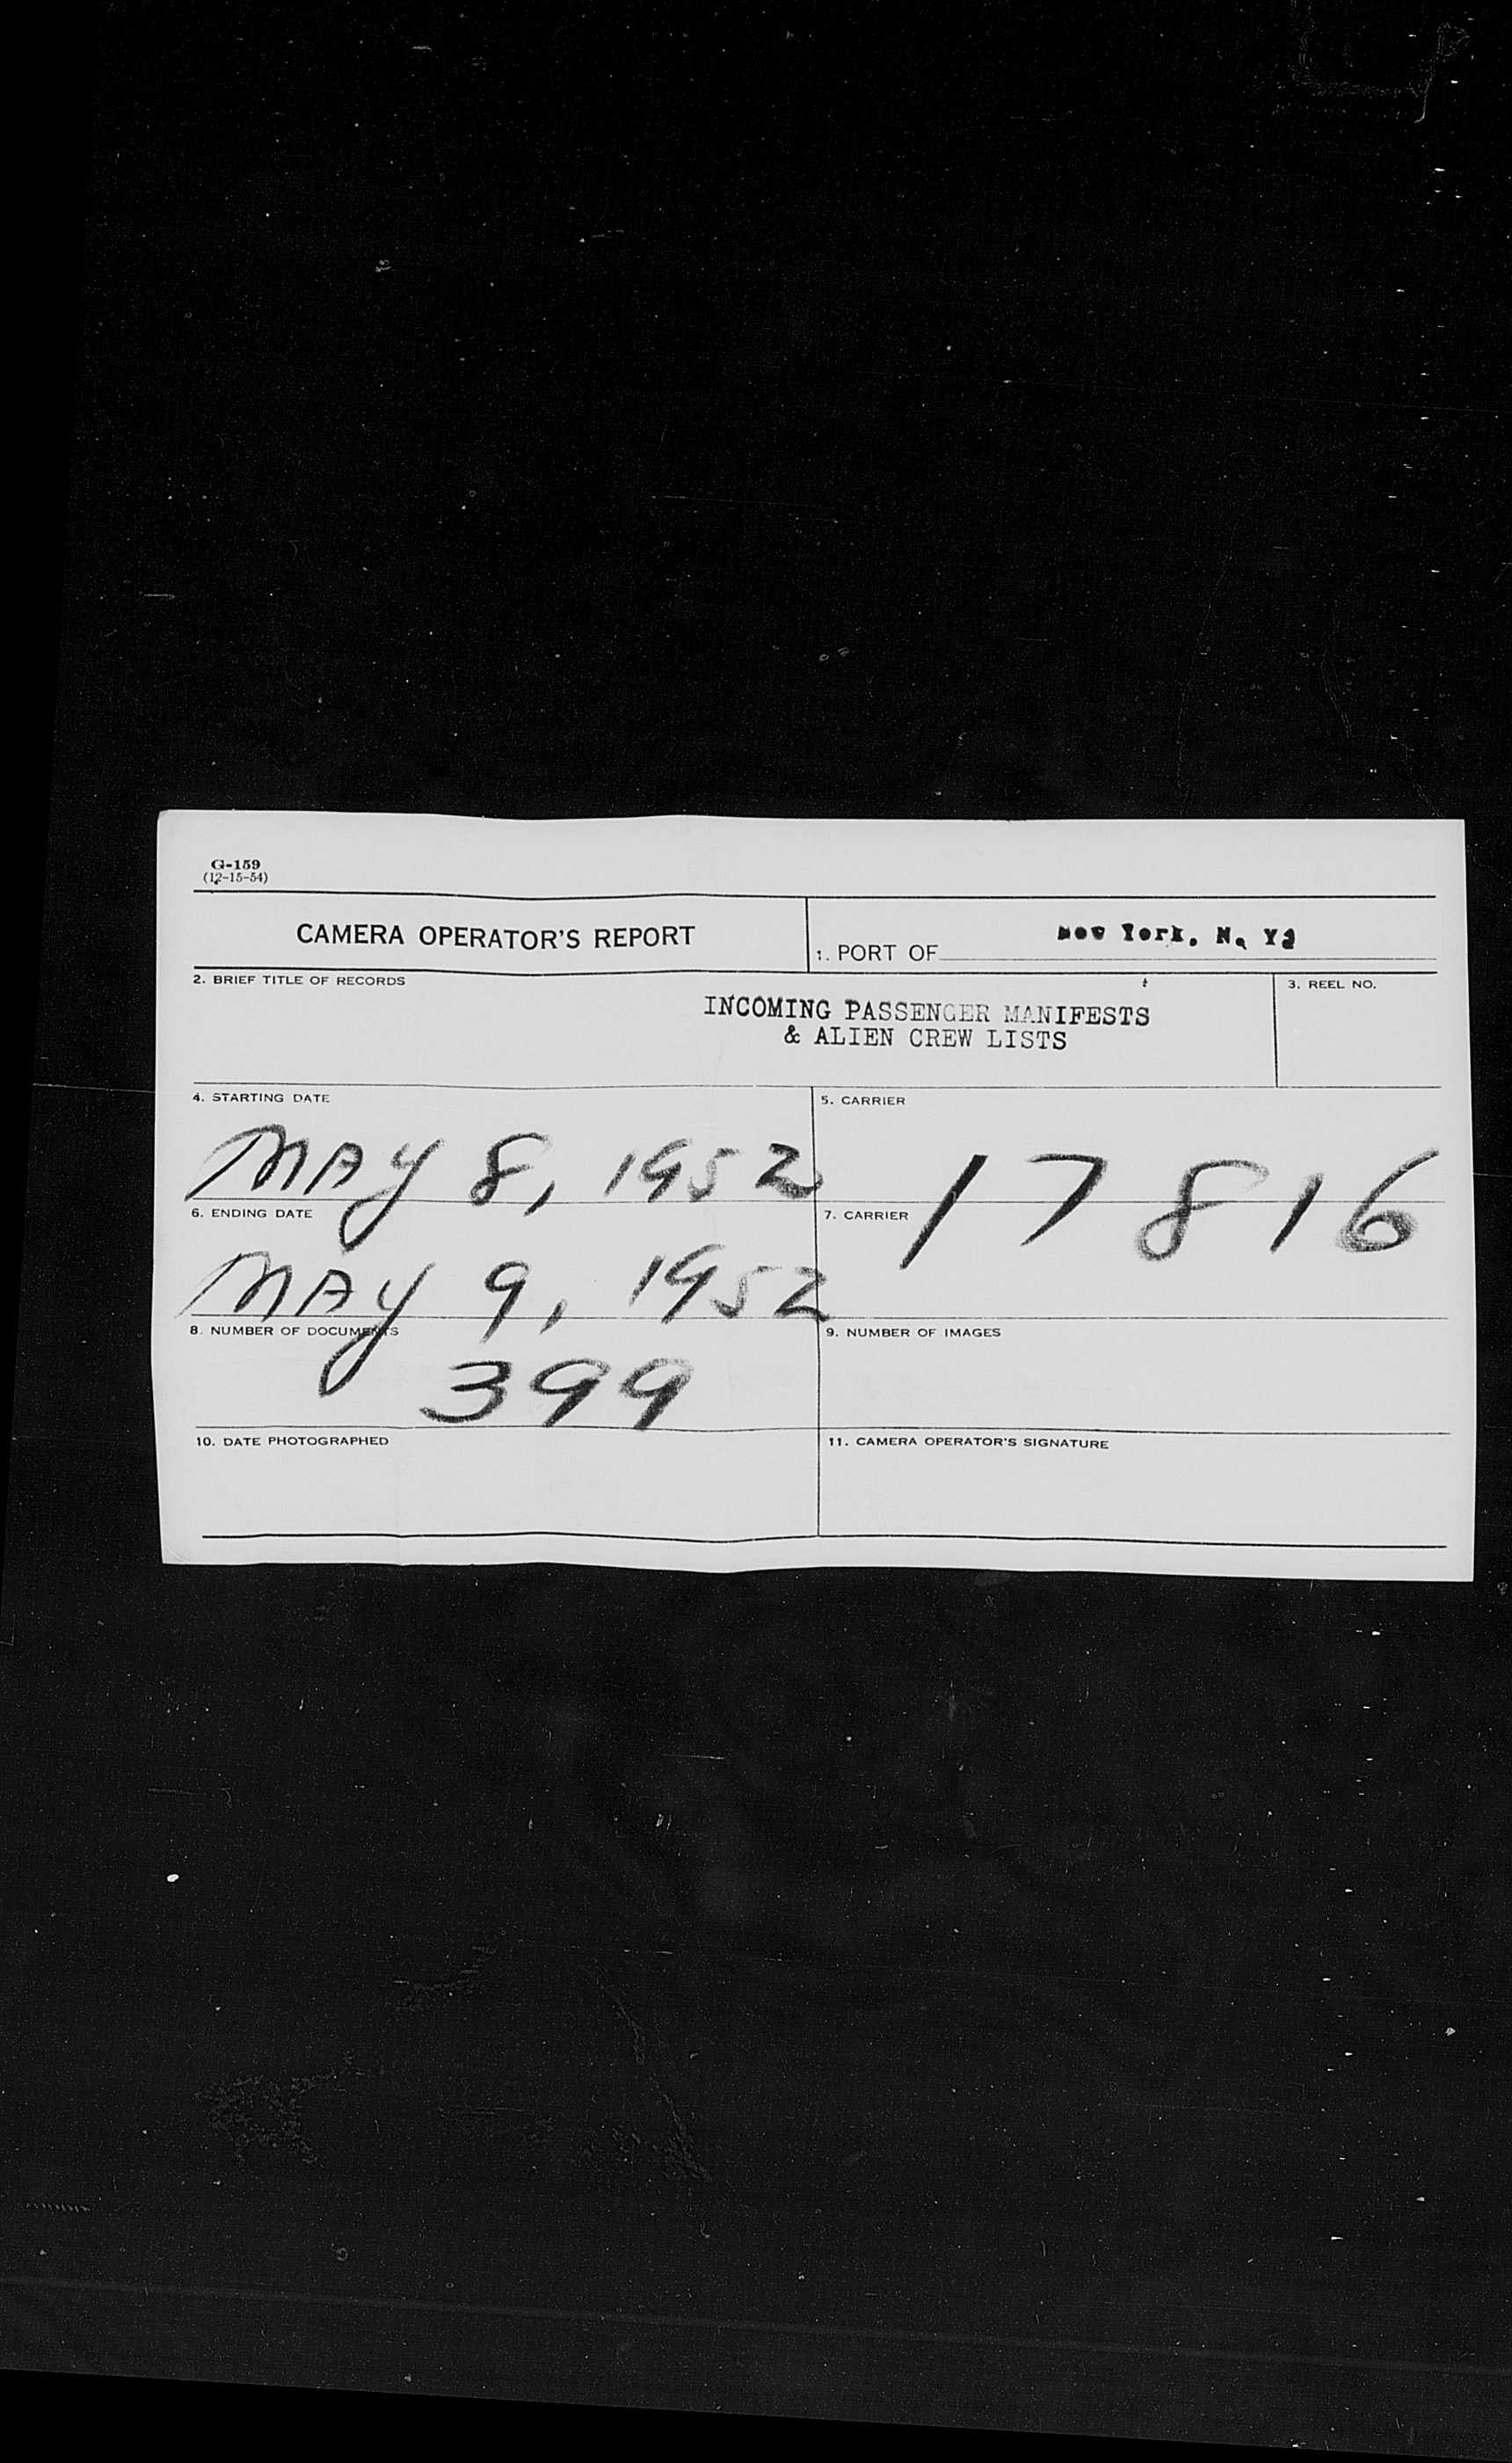 G-159
(12-15-54)
CAMERA OPERATOR'S REPORT
1. PORT OF New York, N. Y.
2. BRIEF TITLE OF RECORDS
INCOMING PASSENGER MANIFESTS
& ALIEN CREW LISTS
3. REEL NO.
4. STARTING DATE
MAY 8, 1952
5. CARRIER
17816
6. ENDING DATE
MAY 9, 1952
7. CARRIER
8. NUMBER OF DOCUMENTS
399
9. NUMBER OF IMAGES
10. DATE PHOTOGRAPHED
11. CAMERA OPERATOR'S SIGNATURE